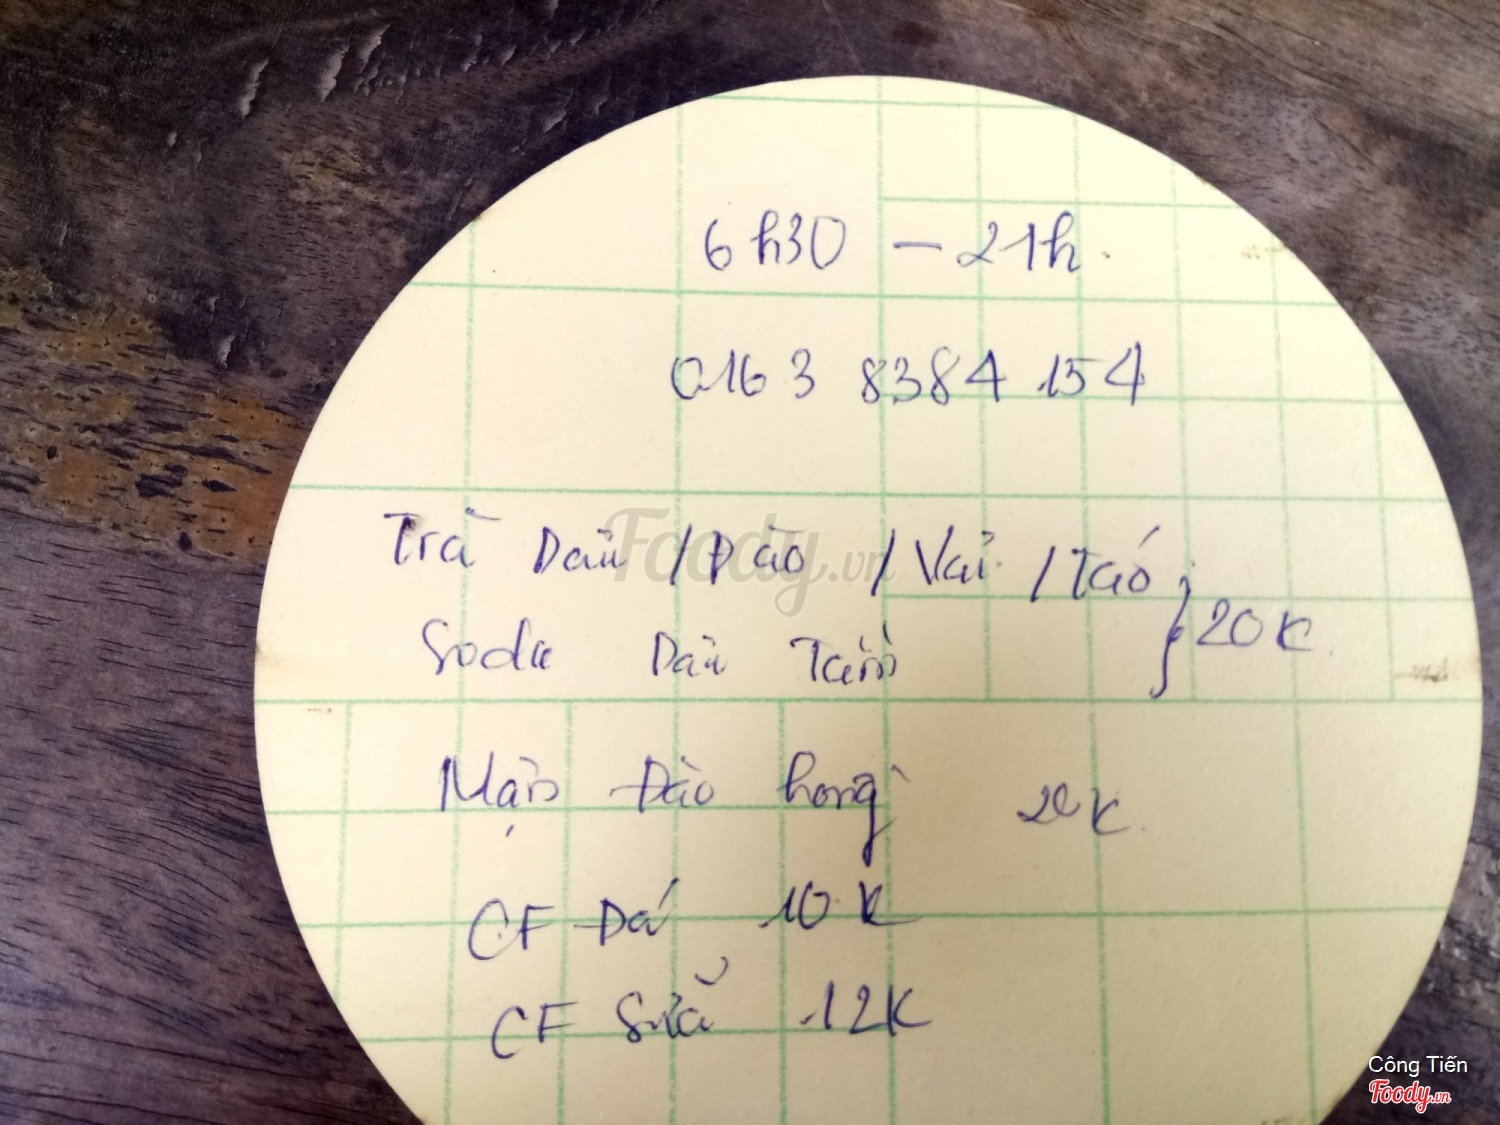 6h30 – 21h.
0163 8384 154
Trà Dâu / Đào / Vải / Táo } 20K
Soda Dâu Tằm
Mận Đào hồng 20K.
CF Đá 10K
CF Sữa 12K
Foody.vn
Công Tiến
Foody.vn